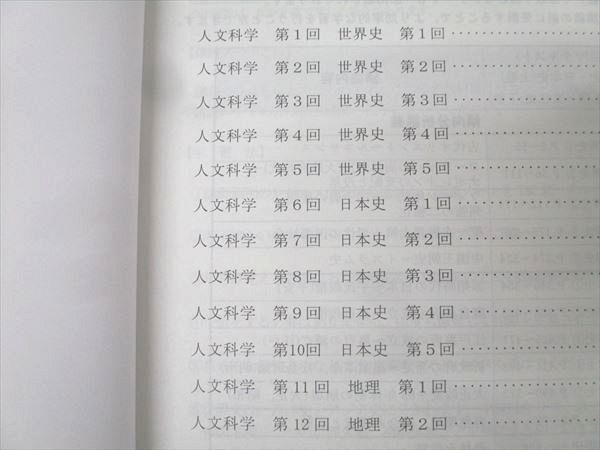 人文科学　第１回　世界史　第１回‥‥‥‥‥
人文科学　第２回　世界史　第２回‥‥‥‥‥
人文科学　第３回　世界史　第３回‥‥‥‥‥
人文科学　第４回　世界史　第４回‥‥‥‥‥
人文科学　第５回　世界史　第５回‥‥‥‥‥
人文科学　第６回　日本史　第１回‥‥‥‥‥
人文科学　第７回　日本史　第２回‥‥‥‥‥
人文科学　第８回　日本史　第３回‥‥‥‥‥
人文科学　第９回　日本史　第４回‥‥‥‥‥
人文科学　第10回　日本史　第５回‥‥‥‥‥
人文科学　第11回　地理　第１回‥‥‥‥‥
人文科学　第12回　地理　第２回‥‥‥‥‥